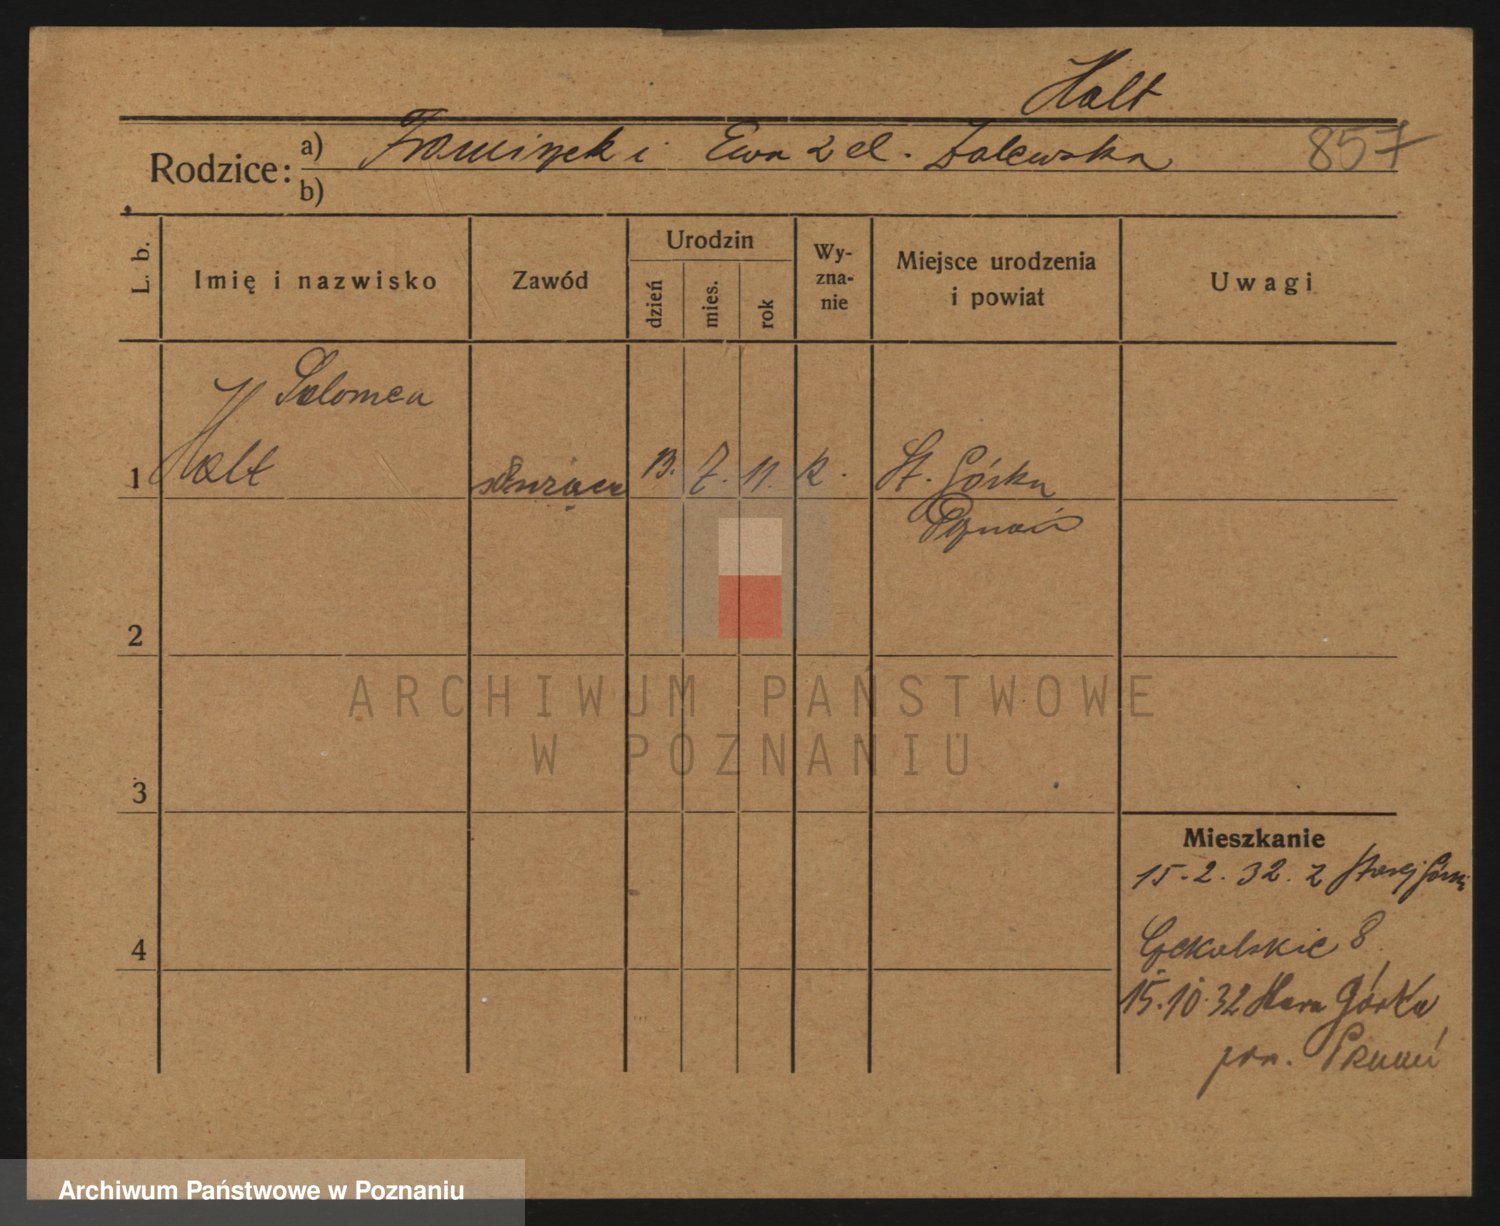 Halt
Rodzice: a) Franciszek i Ewa z d. Zalewska 857
b)
L. b. Imię i nazwisko Zawód Urodzin dzień mies. rok Wy-zna-nie Miejsce urodzenia i powiat Uwagi
Salomea
1 Halt służąca 13. 7. 11. k. St. Górka
Poznań
2
ARCHIWUM PAŃSTWOWE
W POZNANIU
3
Mieszkanie
15.2.32. z Starej Górki
8
4
15.10.32 Stara Górka
pow. Poznań
Archiwum Państwowe w Poznaniu